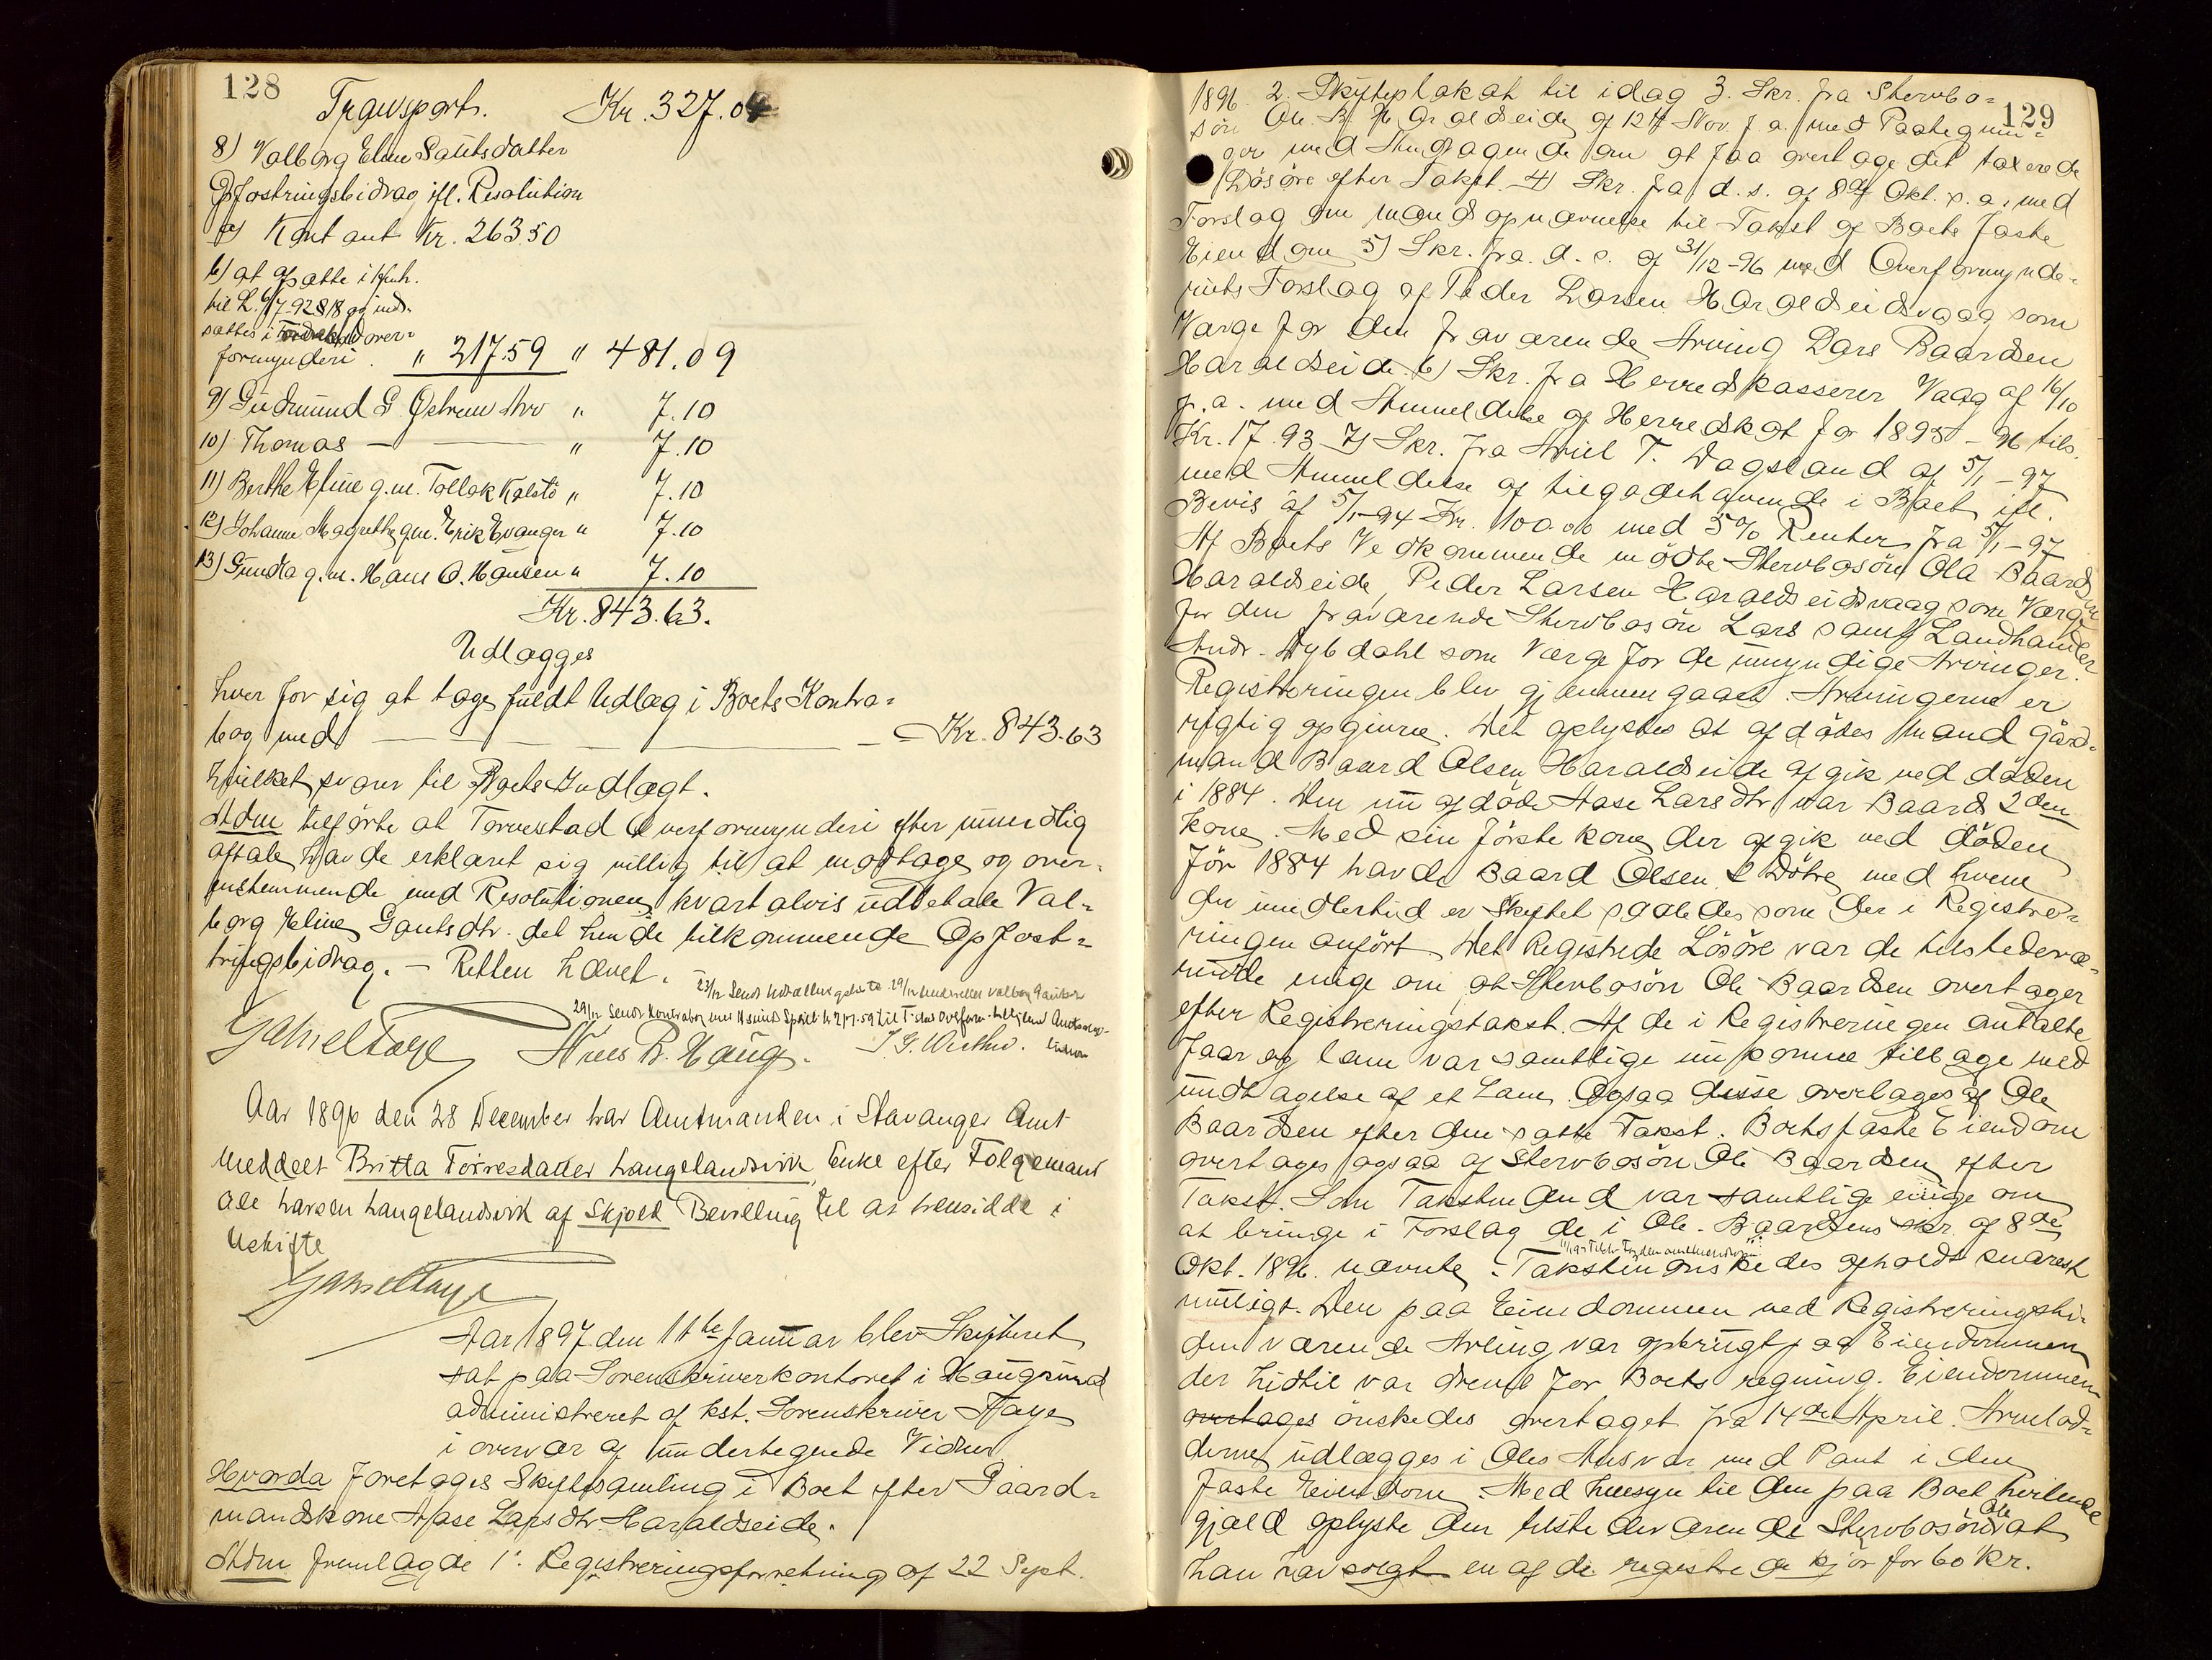 128
Transport. Kr. 327.04
8) Valborg Eline Gautsdatter
Opfostringsbidrag ifl. Resolution
a) Kontant Kr. 263.50
b) at afsætte i Henh.
til L. 6/7-92 § 18 og ind-
sættes i over-
formynderi. " 217.59 " 481.09
9) Gudmund G. Østrem Arv " 7.10
10) Thomas — — " 7.10
11) Berthe Eline g.m. Tollak Kolstø " 7.10
12) Johanne Magrethe g.m. Erik Evanger " 7.10
13) Gunda g.m. Hans O. Hansen " 7.10
Kr. 843.63.
Udlægges
hver for sig at tage fuldt Udlæg i Boets Kontra-
bog med — — — Kr. 843.63
hvilket svarer til Boets Indtægt.
Adm tilførte at Torvestad Overformynderi efter mundtlig
aftale havde erklæret sig villig til at modtage og over-
ensstemmende med Resolutionen kvartalvis udbetale Val-
borg Eline Gautsdtr. det hende tilkommende Opfost-
tringsbidrag. — Retten hævet.
23/12 Sendt Valborg Gauts
29/12 Sendt Kontrabog med Kr 217.59 til T-stad Overform.
Gabriel Faye Niels B. Haug.
Aar 1896 den 28 December har Amtmanden i Stavanger Amt
meddelt Britta Torresdatter Langelandsvik, Enke efter Folgemand
Ole Larsen Langelandsvik af Skjold Bevilling til at hensidde i
Uskifte
Gabriel Faye
Aar 1897 den 11te Januar blev Skifteret
sat paa Sorenskriverkontoret i Haugesund
administreret af kst. Sorenskriver Faye
i overvær af undertegnede Vidner
Hvorda foretages Skiftesamling i Boet efter Gaard-
mandskone Aase Larsdtr. Haraldseide.
Adm fremlagde 1. Registreringsforretning af 22 Sept.
129
1896. 2. Skifteplakat til idag 3. Skr. fra Stervbo-
søn Ole B. Haraldseide af 12te Nov. f. a. med Paategnin-
ger med Andragende om at faa overtage det taxerede
Løsøre efter Takst. 4) Skr. fra d. s. af 8de Okt. s. a. med
Forslag om mandsopnævnelse til Takst af Boets faste
Eiendom 5) Skr. fra d. s. af 31/12-96 med Overformynde-
riets Forslag af Peder Larsen Haraldseidsvaag som
Værge for den fraværende Arving Lars Baardsen
Haraldseide. 6) Skr. fra Herredskasserer Vaag af 16/10
f. a. med Anmeldelse af Herredskat for 1895-96 tils.
Kr. 17.93 7) Skr. fra Ariel T. Dagsland af 5/1-97
med Anmeldelse af tilgodehavende i Boet ifl.
Bevis af 5/1-94 Kr. 100.00 med 5% Renter fra 5/1-97
Af Boets Vedkommende mødte Stervbosøn Ola Baardsen
Haraldseide, Peder Larsen Haraldseidsvaag som Værge
for den fraværende Stervbosøn Lars samt Landhandler
Andr. Dybdahl som Værge for de umyndige Arvinger.
Registreringen blev gjennemgaaet. Arvingerne er
rigtig opgivne. Det oplystes at afdødes Mand Gård-
mand Baard Olsen Haraldseide afgik ved døden
i 1884. Den nu afdøde Aase Larsdtr var Baards 2den
Kone. Med sin første kone der afgik ved døden
før 1884 havde Baard Olsen 2 Døtre med hvem
der imidlertid er Skiftet saaledes som der i Registre-
ringen anført. Det Registrede Løsøre var de tilstedevæ-
rende enige om at Stervbosøn Ole Baardsen overtager
efter Registreringstakst. Af de i Registreringen antalte
faar og lam var samtlige nu komne tilbage med
undtagelse af et Lam. Ogsaa disse overtages af Ole
Baardsen efter den satte Takst. Boets faste Eiendom
overtages ogsaa af Stervbosøn Ole Baardsen efter
Takst. Som Takstmænd var samtlige enige om
at bringe i Forslag de i Ole Baardsens skr. af 8de
Okt. 1896 nævnte. Taksten ønskedes afholdt snarest
muligt. Den paa Eiendommen ved Registreringsti-
den værende Avling var opbrugt paa Eiendommen
der hidtil var drevet for Boets regning. Eiendommen
overtages ønskedes overtaget fra 14de April. Arvelod-
derne udlægges i Oles Ansvar med Pant i den
faste Eiendom. Med hensyn til den paa Boet hvilende
gjæld oplyste den tilstedeværende Stervbosøn Ole at
han har solgt en af de registrede kjør for 60 Kr.